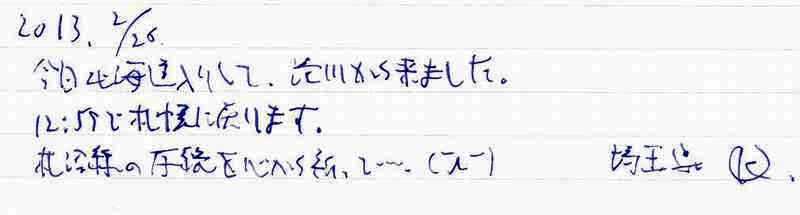 2013. 2/26.
今日北海道入りして、滝川から来ました。
12:59で札幌に戻ります。
札沼線の存続を心から祈って…。 埼玉県